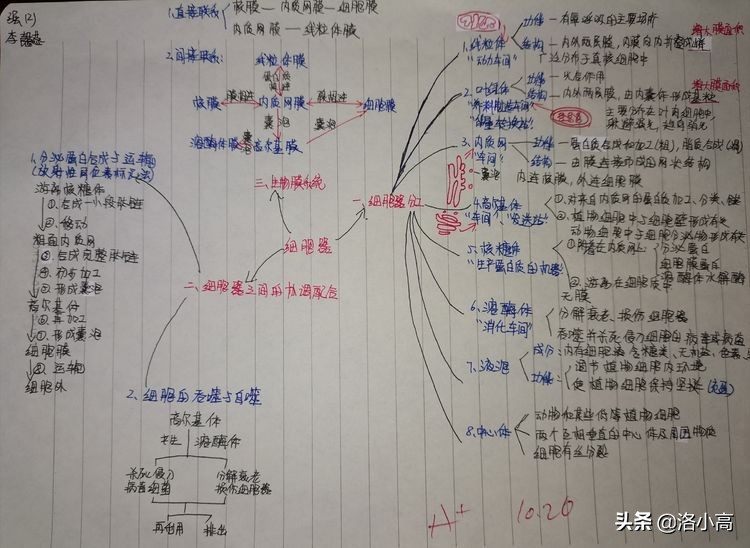 强(2)
1.直接联系
核膜——内质网膜——细胞膜
内质网膜——线粒体膜
2.间接联系:
线粒体膜
核膜
膜相连
内质网膜
膜相连
细胞膜
囊泡
溶酶体膜
囊泡
高尔基膜
囊泡
三、生物膜系统
细胞器
一、细胞器分工
二、细胞器之间的协调配合
1.分泌蛋白合成与运输
(放射性同位素标记法)
游离核糖体
①.合成一小段肽链
②.移动
粗面内质网
③.合成完整肽链
④.初步加工
⑤.形成囊泡
高尔基体
⑥.再加工
⑦.形成囊泡
细胞膜
⑧.运输
细胞外
2.细胞自吞噬与自噬
高尔基体
溶酶体
杀死侵入
病毒细菌
分解衰老
损伤细胞器
再利用
排出
1.线粒体
"动力车间"
功能——有氧呼吸的主要场所
增大膜面积
结构——内外两层膜,内膜向内折叠成嵴
分布于真核细胞中
2.叶绿体
功能——光合作用
增大膜面积
结构——内外两层膜,由内囊体形成基粒
主要分布在叶肉细胞中
3.内质网
"车间"
功能——蛋白质合成和加工(粗),脂质合成(滑)
结构——由膜连接形成的网状结构
内连核膜,外连细胞膜
囊泡
4.高尔基体
"车间"、"发送站"
①.对来自内质网的蛋白质加工、分类、
②.植物细胞中与细胞壁形成有关
动物细胞中与细胞分泌物形成有关
5.核糖体
"生产蛋白质的机器"
①.附着在内质网上
分泌蛋白
细胞膜蛋白
溶酶体水解酶
②.游离在细胞质中
无膜
6.溶酶体
"消化车间"
分解衰老、损伤细胞器
吞噬并杀死侵入细胞的病毒或病菌
7.液泡
成分:内有细胞液,含糖类、无机盐、色素、
功能:
调节植物细胞内环境
使植物细胞保持坚挺
8.中心体
动物和某些低等植物细胞
两个互相垂直的中心体及周围物质
细胞有丝分裂
A+
10.26
头条@洛小高